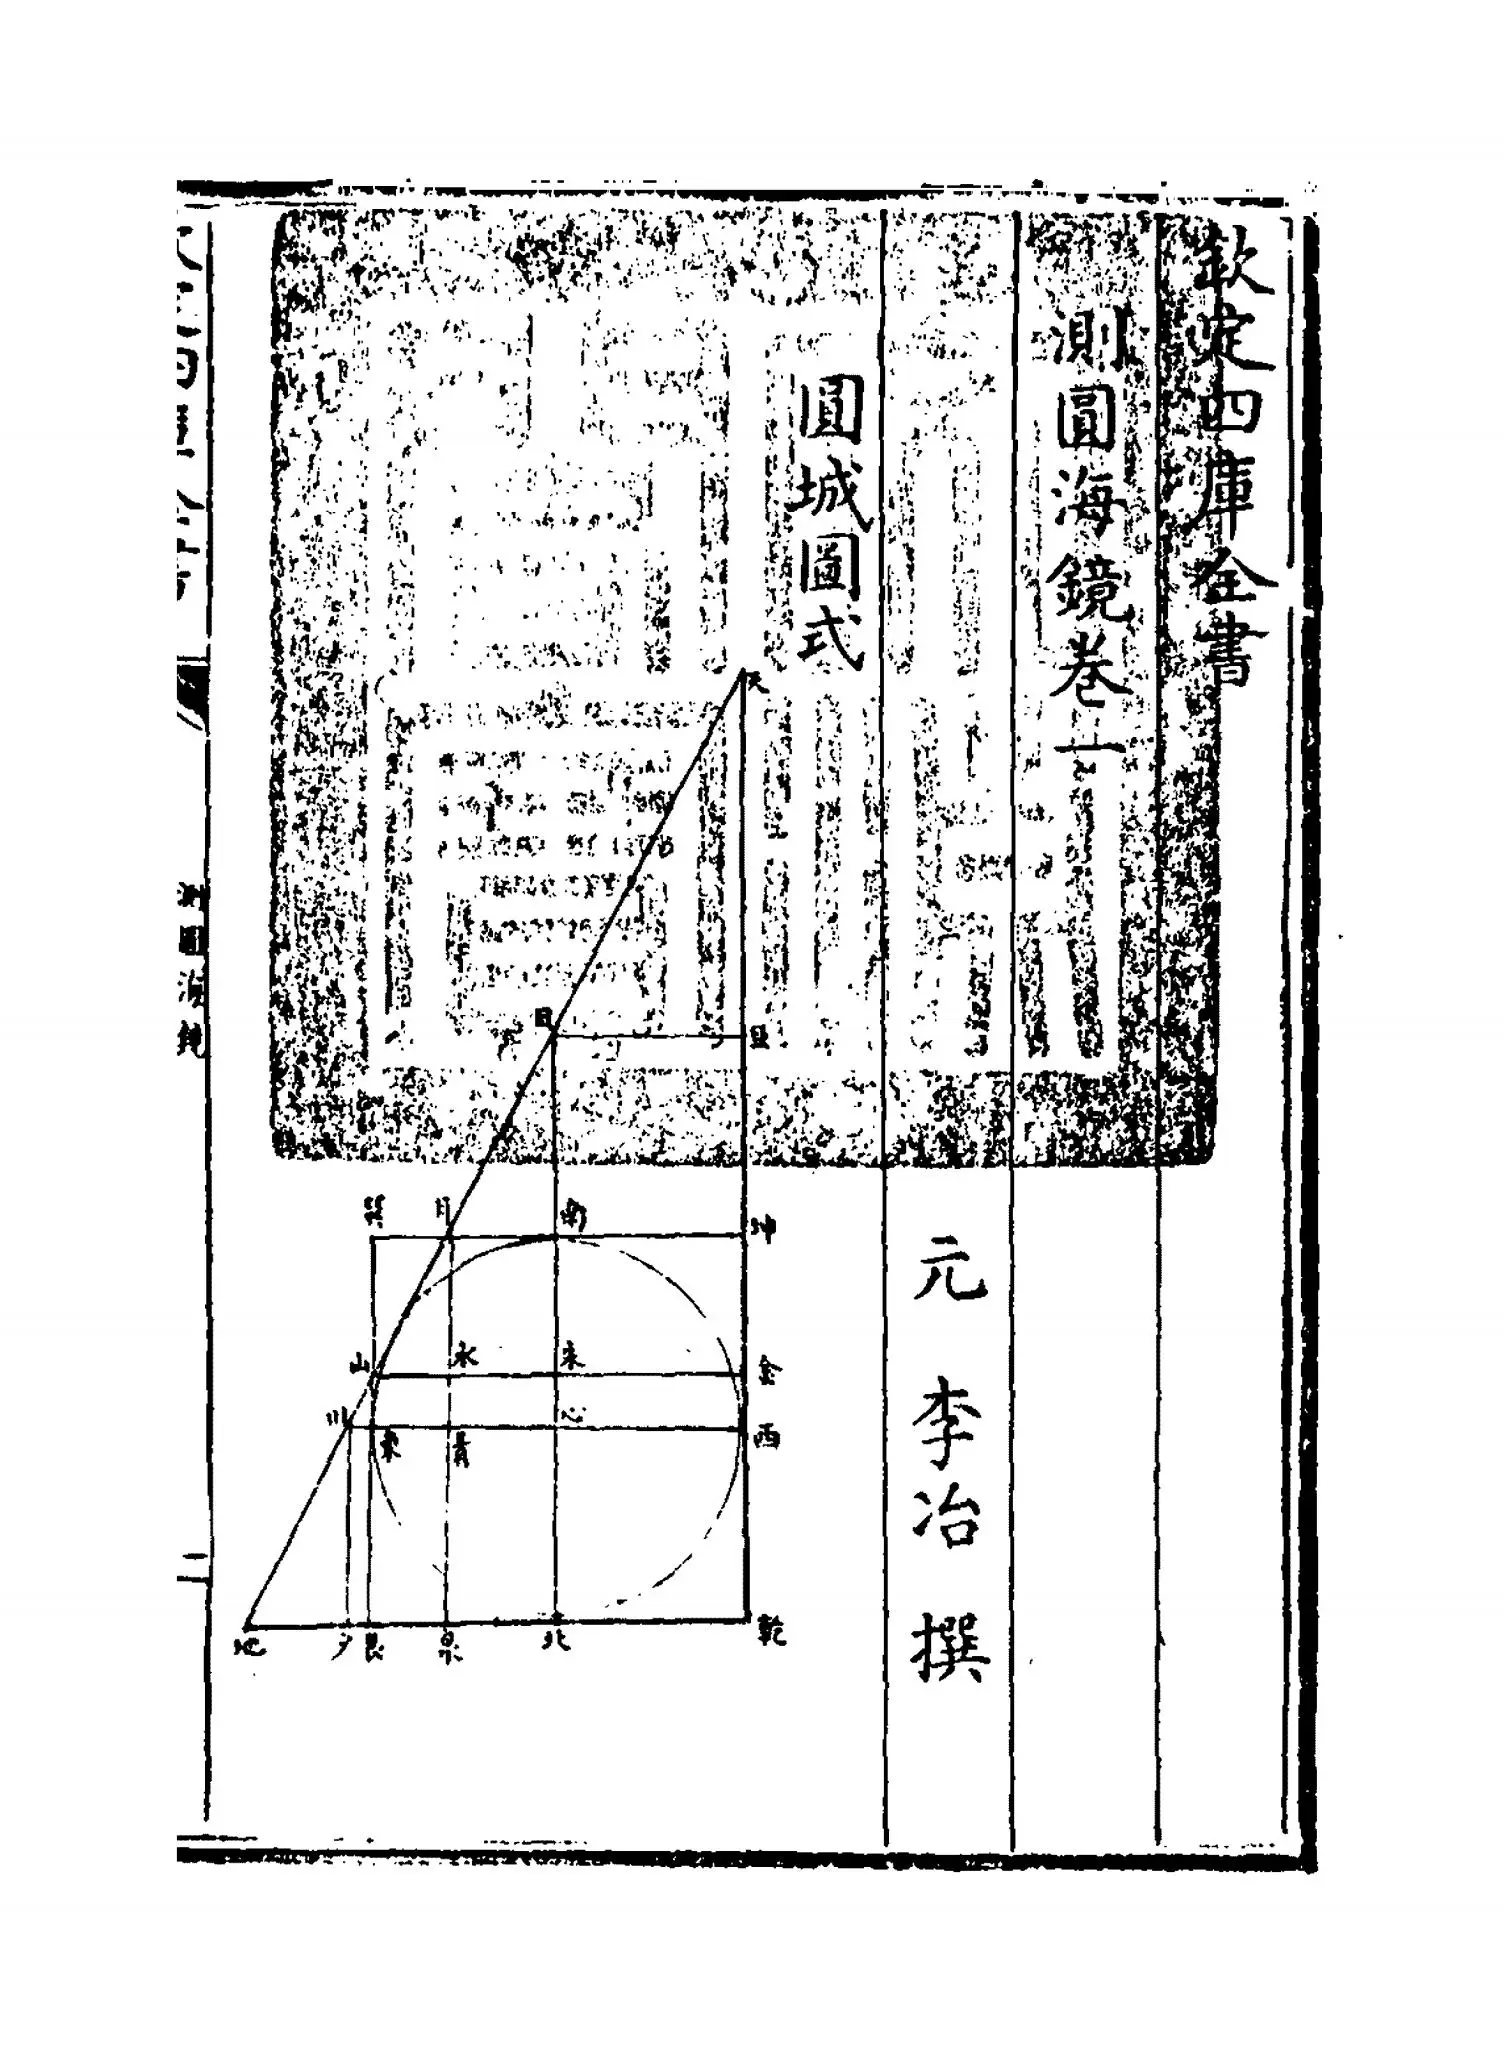 欽定四庫全書
測圓海鏡卷一
元 李冶 撰
圓城圖式
天
日 旦
巽 月 南 坤
山 泳 朱 金
川 東 青 心 西
地 夕 艮 泉 北 乾
測圓海鏡